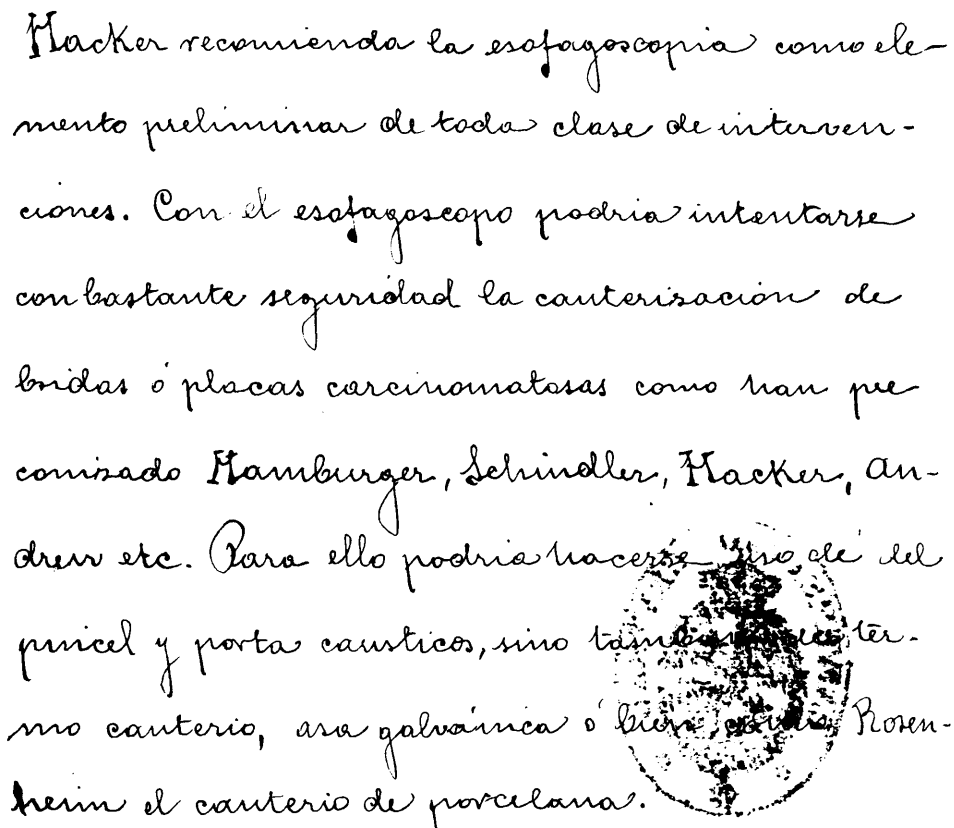 Hacker recomienda la esofagoscopia como ele-
mento preliminar de toda clase de interven-
ciones. Con el esofagoscopo podria intentarse
con bastante seguridad la cauterisación de
bridas ó placas carcinomatosas como han pre
conizado Hamburger, Schindler, Hacker, An-
drew etc. Para ello podria hacerse uso del
pincel y porta causticos, sino ter-
mo cauterio, asa galvánica ó bien Rosen-
heim el cauterio de porcelana.